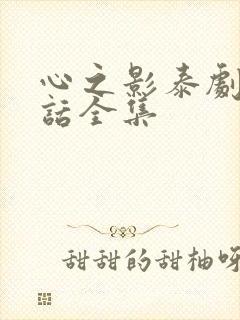 心之影泰劇
話全集
甜甜的甜柚呀